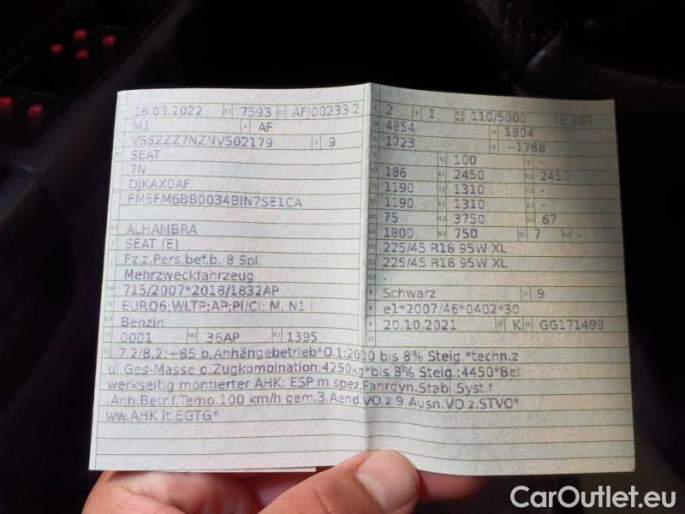 16.03.2022 7593 AF|00233 2
M1 AF
VSSZZZ7NZNV502179 9
SEAT
7N
DJKAX0AF
FM6FM6BB0034BIN7SE1CA
ALHAMBRA
SEAT (E)
Fz.z.Pers.bef.b. 8 Spl.
Mehrzweckfahrzeug
715/2007*2018/1832AP
EURO6;WLTP;AP;PI/CI; M, N1 I
Benzin
0001 36AP 1395
2 1 110/5000 200
4854 1904
1723 -1788
100 -
186 2450 2450
1190 1310 -
1190 1310 -
75 3750 67
1800 750 7 -
225/45 R18 95W XL
225/45 R18 95W XL
-
-
Schwarz 9
e1*2007/46*0402*30
20.10.2021 K GG171499
7.2/8.2:+85 b.Anhängebetrieb*O.1:2000 bis 8% Steig.*techn.z
ul.Ges-Masse d.Zugkombination:4250kg*bis 8% Steig.:4450*Bei
werkseitig montierter AHK: ESP m.spez.Fahrdyn.Stabi.Syst.f
.Anh.Betr.f.Temo.100 km/h gem.3.Aend.VO.z.9 Ausn.VO z.STVO*
ww.AHK lt.EGTG*
CarOutlet.eu